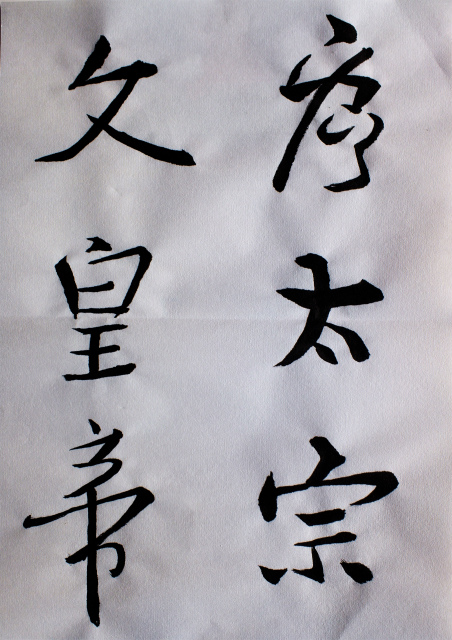 序太宗
文皇帝